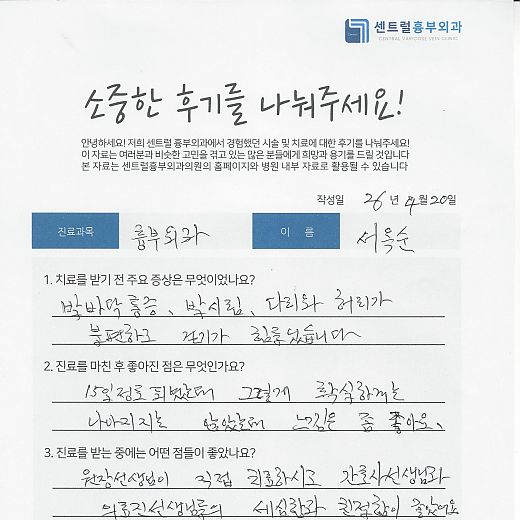 센트럴흉부외과
CENTRAL VARICOSE VEIN CLINIC
소중한 후기를 나눠주세요!
안녕하세요! 저희 센트럴 흉부외과에서 경험했던 시술 및 치료에 대한 후기를 나눠주세요!
이 자료는 여러분과 비슷한 고민을 겪고 있는 많은 분들에게 희망과 용기를 드릴 것입니다
본 자료는 센트럴흉부외과의원의 홈페이지와 병원 내부 자료로 활용될 수 있습니다
작성일 26 년 4월 20일
진료과목 흉부외과 이 름 서옥순
1. 치료를 받기 전 주요 증상은 무엇이었나요?
발바닥 통증、발시림、다리와 허리가
불편하고 걷기가 힘들었습니다~
2. 진료를 마친 후 좋아진 점은 무엇인가요?
15일정도 되었는데 그렇게 확실하게는
나아지지는 않았는데 느낌은 좀 좋아요、
3. 진료를 받는 중에는 어떤 점들이 좋았나요?
원장선생님이 직접 치료하시고 간호사선생님과
의료진선생님들의 세심함과 친절함이 좋았어요